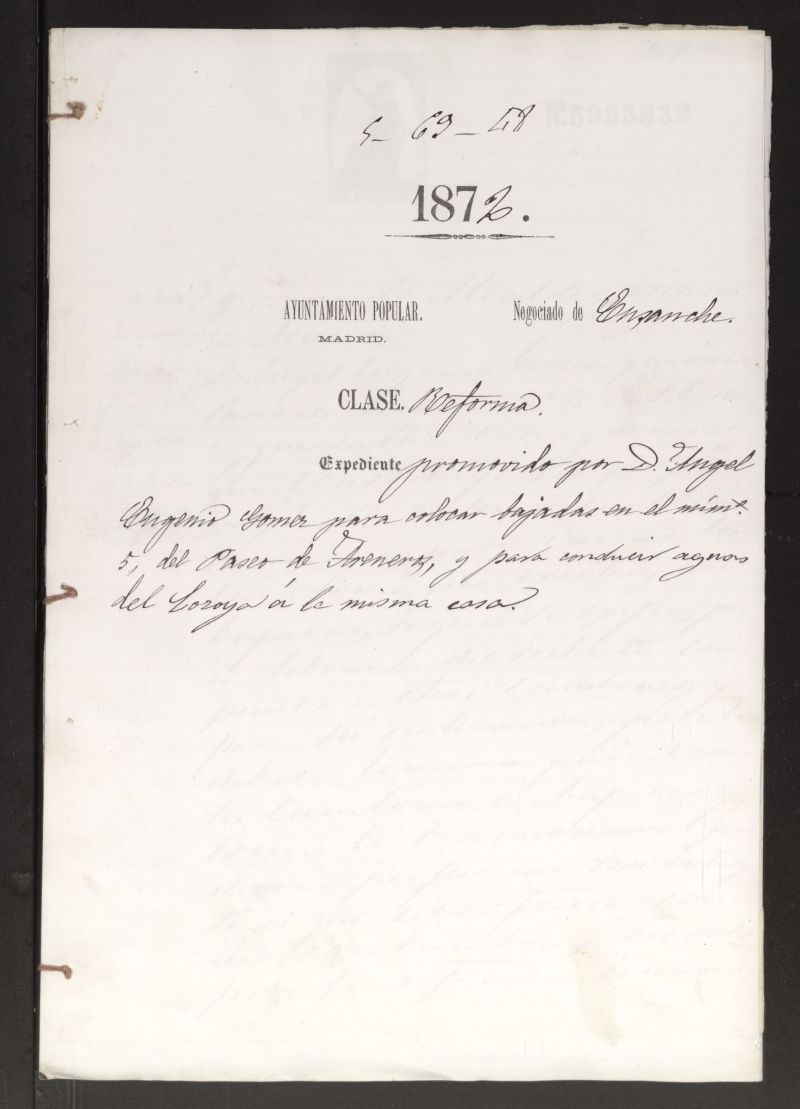 5-69-48
Nº5993832
1872.
AYUNTAMIENTO POPULAR.
MADRID.
Negociado de Ensanche.
CLASE. Reforma.
Expediente promovido por D. Angel
Eugenio Gomez para colocar bajadas en el núm.º
5, del Paseo de Areneros, y para conducir aguas
del Lozoya á la misma casa.